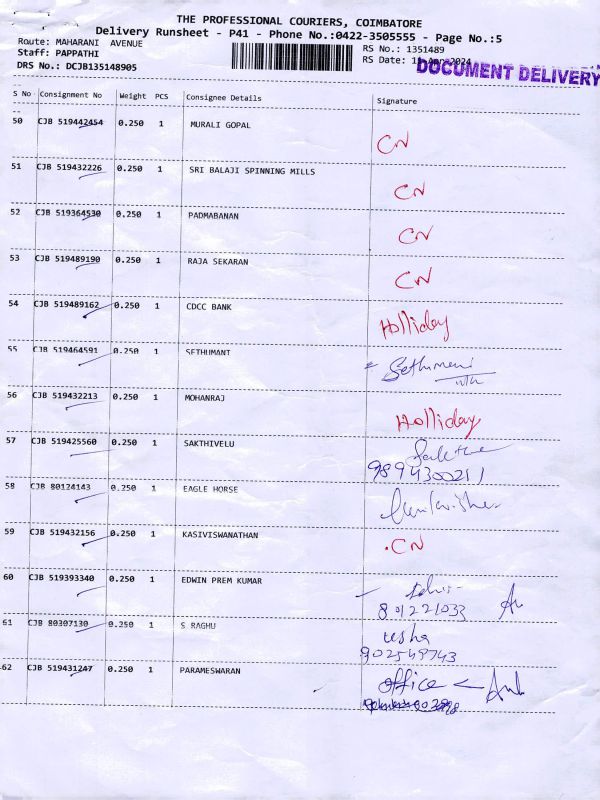 THE PROFESSIONAL COURIERS, COIMBATORE
Delivery Runsheet - P41 - Phone No.:0422-3505555 - Page No.:5
Route: MAHARANI AVENUE
RS No.: 1351489
Staff: PAPPATHI
RS Date: Apr 2024
DOCUMENT DELIVERY
DRS No.: DCJB135148905
S No Consignment No Weight PCS Consignee Details Signature
50 CJB 519442454 0.250 1 MURALI GOPAL CN
51 CJB 519432226 0.250 1 SRI BALAJI SPINNING MILLS CN
52 CJB 519364530 0.250 1 PADMABANAN CN
53 CJB 519489190 0.250 1 RAJA SEKARAN CN
54 CJB 519489162 0.250 1 CDCC BANK Holliday
55 CJB 519464591 0.250 1 SETHUMANT Sethumani
56 CJB 519432213 0.250 1 MOHANRAJ Holliday
57 CJB 519425560 0.250 1 SAKTHIVELU
9894300211
58 CJB 80124143 0.250 1 EAGLE HORSE
59 CJB 519432156 0.250 1 KASIVISWANATHAN CN
60 CJB 519393340 0.250 1 EDWIN PREM KUMAR
801221033
61 CJB 80307130 0.250 1 S RAGHU usha
902549743
62 CJB 519431247 0.250 1 PARAMESWARAN office